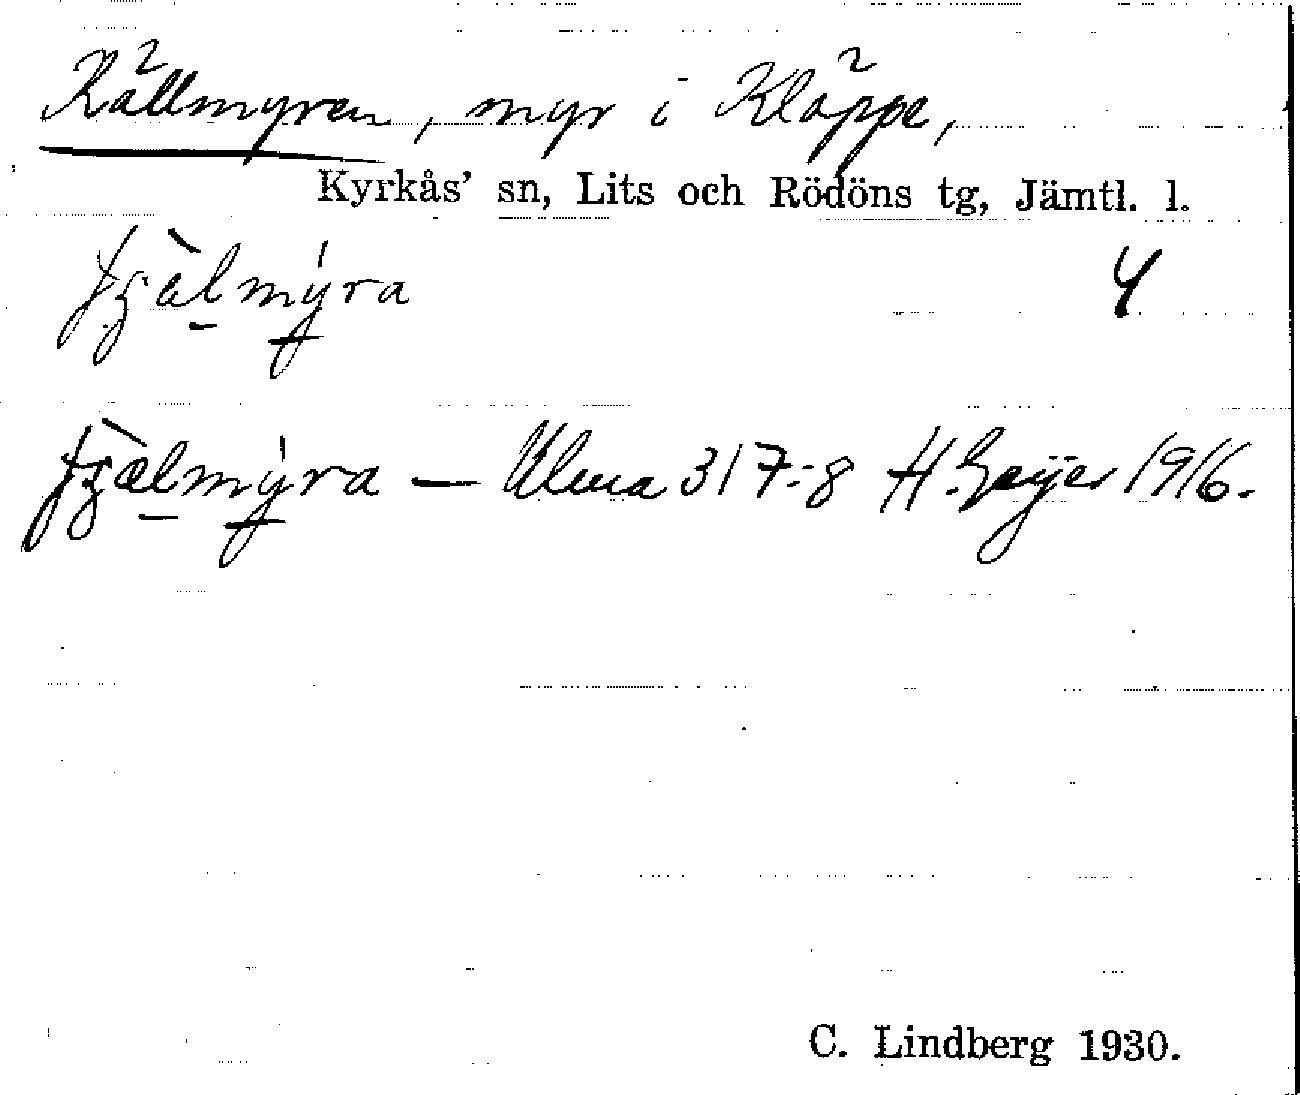 Källmyren, myr i Kläppe,
Kyrkås' sn, Lits och Rödöns tg, Jämtl. l.
4
— Ulma 317:8 H. Geijer 1916.
C. Lindberg 1930.